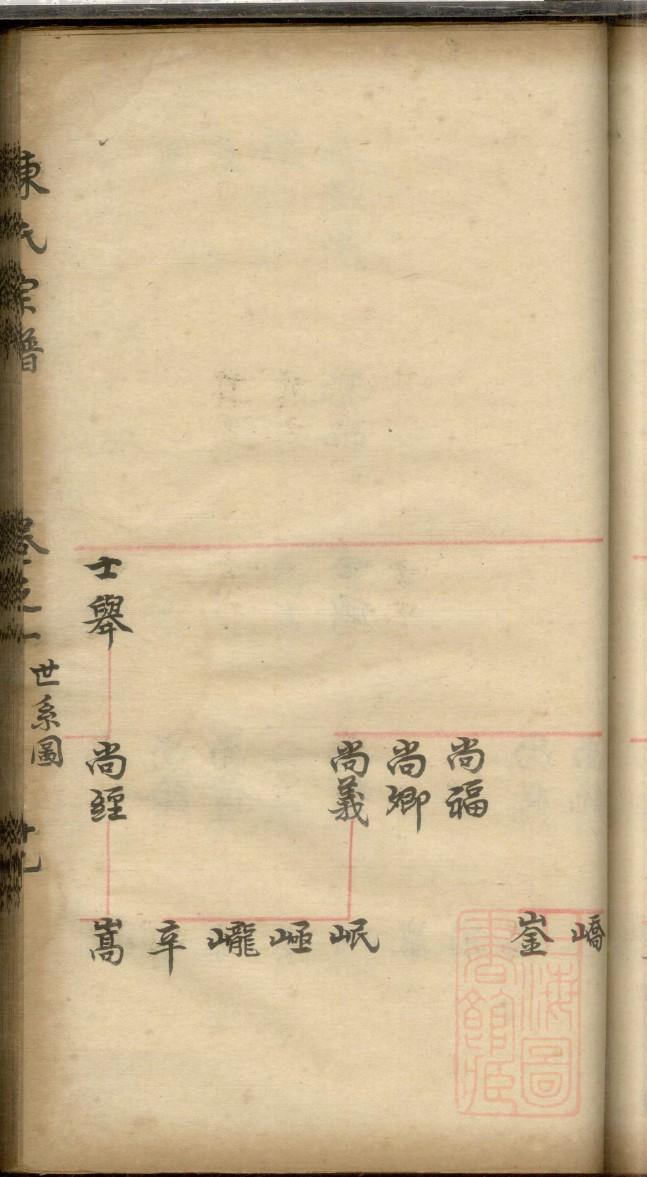 嶠
崟
尚福
尚卿
尚義
岷
㟇
巄
卒
士舉
尚經
嵩
陳氏宗譜
卷之一
世系圖
廿九
上海圖書館藏